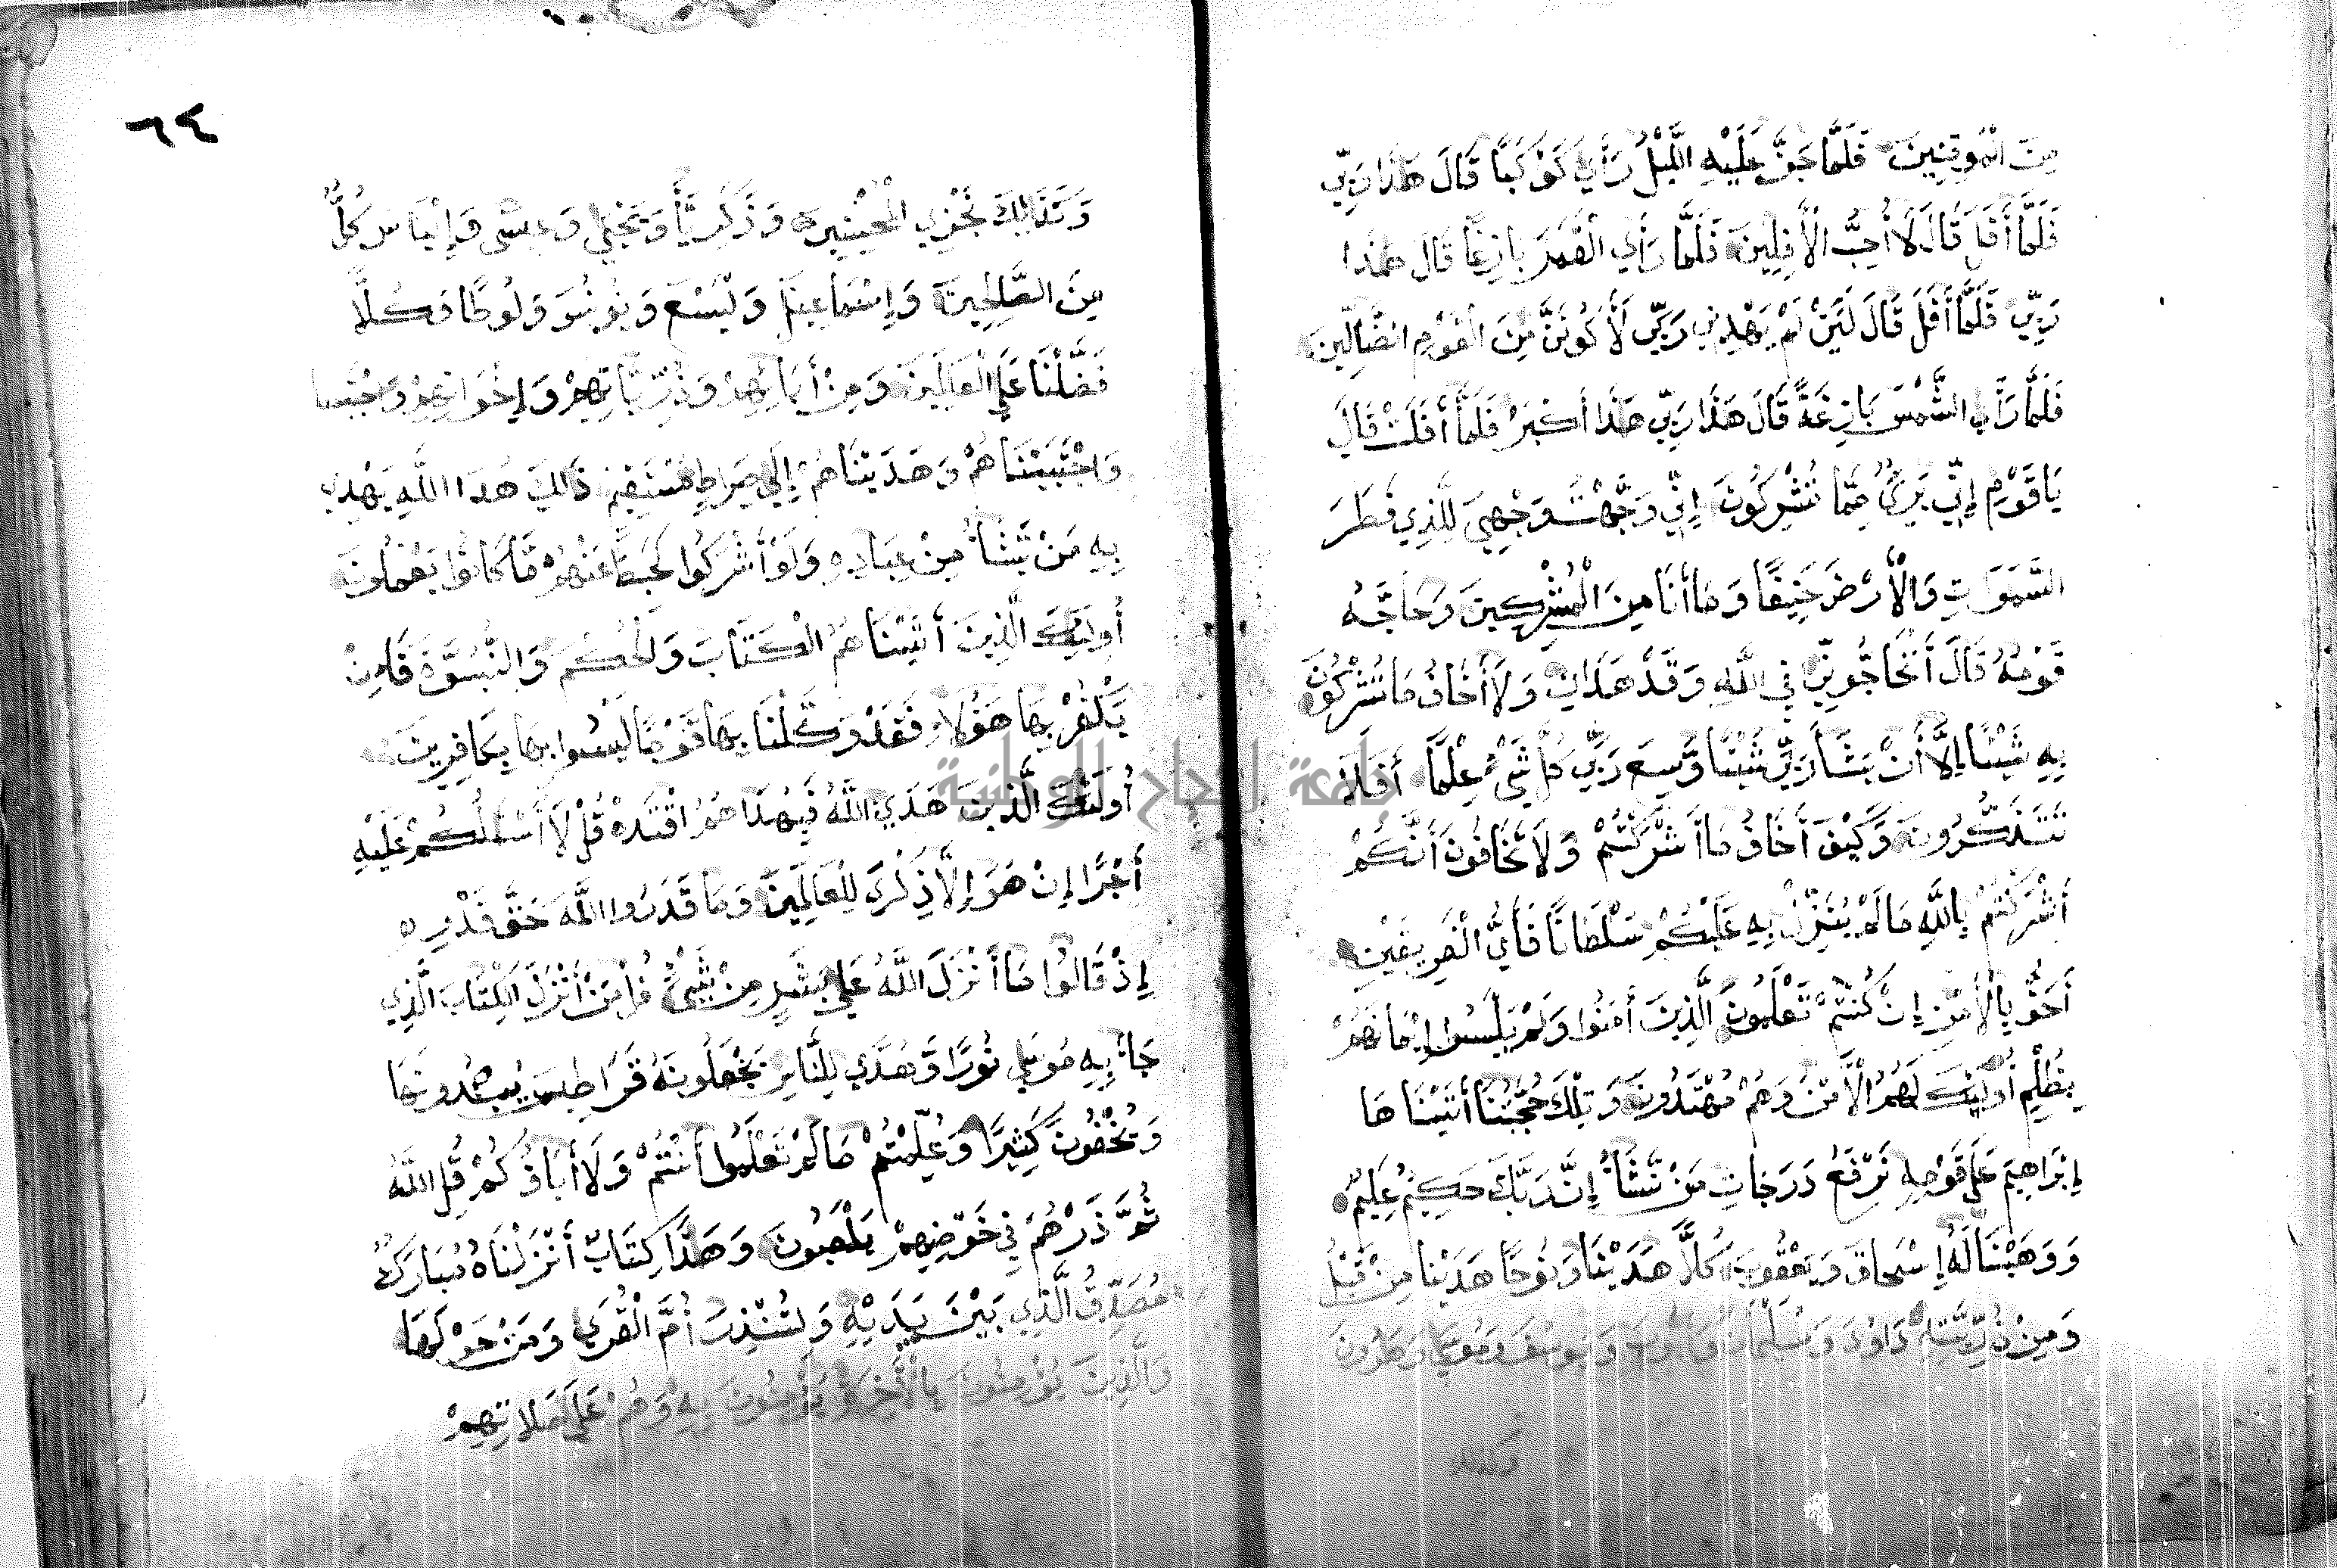 مِنَ الْمُوقِنِينَ فَلَمَّا جَنَّ عَلَيْهِ اللَّيْلُ رَأَي كَوْكَبًا قَالَ هَذَا رَبِّي
فَلَمَّا أَفَلَ قَالَ لَا أُحِبُّ الْأَفِلِينَ فَلَمَّا رَأَي الْقَمَرَ بَازِغًا قَالَ هَذَا
رَبِّي فَلَمَّا أَفَلَ قَالَ لَئِنْ لَمْ يَهْدِنِي رَبِّي لَأَكُونَنَّ مِنَ الْقَوْمِ الضَّالِّينَ
فَلَمَّا رَأَي الشَّمْسَ بَازِغَةً قَالَ هَذَا رَبِّي هَذَا أَكْبَرُ فَلَمَّا أَفَلَتْ قَالَ
يَا قَوْمِ إِنِّي بَرِيٌ مِمَّا تُشْرِكُونَ إِنِّي وَجَّهْتُ وَجْهِيَ لِلَّذِي فَطَرَ
السَّمَوَاتِ وَالْأَرْضَ حَنِيفًا وَمَا أَنَا مِنَ الْمُشْرِكِينَ وَحَاجَّهُ
قَوْمُهُ قَالَ أَتُحَاجُّونِّي فِي اللَّهِ وَقَدْ هَدَانِ وَلَا أَخَافُ مَا تُشْرِكُونَ
بِهِ شَيْئًا إِلَّا أَنْ يَشَأَ رَبِّي شَيْئًا وَسِعَ رَبِّي كُلَّ شَيْءٍ عِلْمًا أَفَلَا
تَتَذَكَّرُونَ وَكَيْفَ أَخَافُ مَا أَشْرَكْتُمْ وَلَا تَخَافُونَ أَنَّكُمْ
أَشْرَكْتُمْ بِاللَّهِ مَا لَمْ يُنَزِّلْ بِهِ عَلَيْكُمْ سُلْطَانًا فَأَيُّ الْفَرِيقَيْنِ
أَحَقُّ بِالْأَمْنِ إِنْ كُنْتُمْ تَعْلَمُونَ الَّذِينَ أَمَنُوا وَلَمْ يَلْبِسُوا إِيمَانَهُمْ
بِظُلْمٍ أُولَئِكَ لَهُمُ الْأَمْنُ وَهُمْ مُهْتَدُونَ وَتِلْكَ حُجَّتُنَا أَتَيْنَاهَا
إِبْرَاهِيمَ عَلَي قَوْمِهِ نَرْفَعُ دَرَجَاتِ مَنْ نَّشَأُ إِنَّ رَبَّكَ حَكِيمٌ عَلِيمٌ
وَوَهَبْنَا لَهُ إِسْحَاقَ وَيَعْقُوبَ كُلًّا هَدَيْنَا وَنُوحًا هَدَيْنَا مِنْ قَبْلُ
وَمِنْ ذُرِّيَّتِهِ دَاوُدَ وَسُلَيْمَانَ وَأَيُّوبَ وَيُوسُفَ وَمُوسَي وَهَارُونَ
وكذلك
٦٤
وَكَذَلِكَ نَجْزِي الْمُحْسِنِينَ وَزَكَرِيَّأَ وَيَحْيَي وَعِيسَى وَإِلْيَاسَ كُلٌّ
مِنَ الصَّالِحِينَ وَإِسْمَاعِيلَ وَلْيَسَعَ وَيُونُسَ وَلُوطًا وَكُلًّا
فَضَّلْنَا عَلَي الْعَالَمِينَ وَمِنْ أَبَائِهِمْ وَذُرِّيَّاتِهِمْ وَإِخْوَانِهِمْ
وَاجْتَبَيْنَاهُمْ وَهَدَيْنَاهُمْ إِلَي صِرَاطٍ مُسْتَقِيمٍ ذَالِكَ هُدَا اللَّهِ يَهْدِي
بِهِ مَنْ يَّشَأُ مِنْ عِبَادِهِ وَلَوْ أَشْرَكُوا لَحَبِطَ عَنْهُمْ مَا كَانُوا يَعْمَلُونَ
أُولَئِكَ الَّذِينَ أَتَيْنَاهُمُ الْكِتَابَ وَالْحُكْمَ وَالنُّبُوَّةَ فَإِنْ
يَكْفُرْ بِهَا هَؤُلَاءِ فَقَدْ وَكَّلْنَا بِهَا قَوْمًا لَيْسُوا بِهَا بِكَافِرِينَ
أُولَئِكَ الَّذِينَ هَدَي اللَّهُ فَبِهُدَاهُمُ اقْتَدِهْ قُلْ لَا أَسْأَلُكُمْ عَلَيْهِ
أَجْرًا إِنْ هُوَ إِلَّا ذِكْرَي لِلْعَالَمِينَ وَمَا قَدَرُوا اللَّهَ حَقَّ قَدْرِهِ
إِذْ قَالُوا مَا أَنْزَلَ اللَّهُ عَلَي بَشَرٍ مِنْ شَيْءٍ قُلْ مَنْ أَنْزَلَ الْكِتَابَ الَّذِي
جَأَ بِهِ مُوسَي نُورًا وَّهُدًي لِلنَّاسِ تَجْعَلُونَهُ قَرَاطِيسَ يُبْدُونَهَا
وَتُخْفُونَ كَثِيرًا وَعُلِّمْتُمْ مَا لَمْ تَعْلَمُوا أَنْتُمْ وَلَا أَبَاؤُكُمْ قُلِ اللَّهُ
ثُمَّ ذَرْهُمْ فِي خَوْضِهِمْ يَلْعَبُونَ وَهَذَا كِتَابٌ أَنْزَلْنَاهُ مُبَارَكٌ
مُصَدِّقُ الَّذِي بَيْنَ يَدَيْهِ وَلِتُنْذِرَ أُمَّ الْقُرَي وَمَنْ حَوْلَهَا
وَالَّذِينَ يُؤْمِنُونَ بِالْأَخِرَةِ يُؤْمِنُونَ بِهِ وَهُمْ عَلَي صَلَاتِهِمْ
جامعة النجاح الوطنية